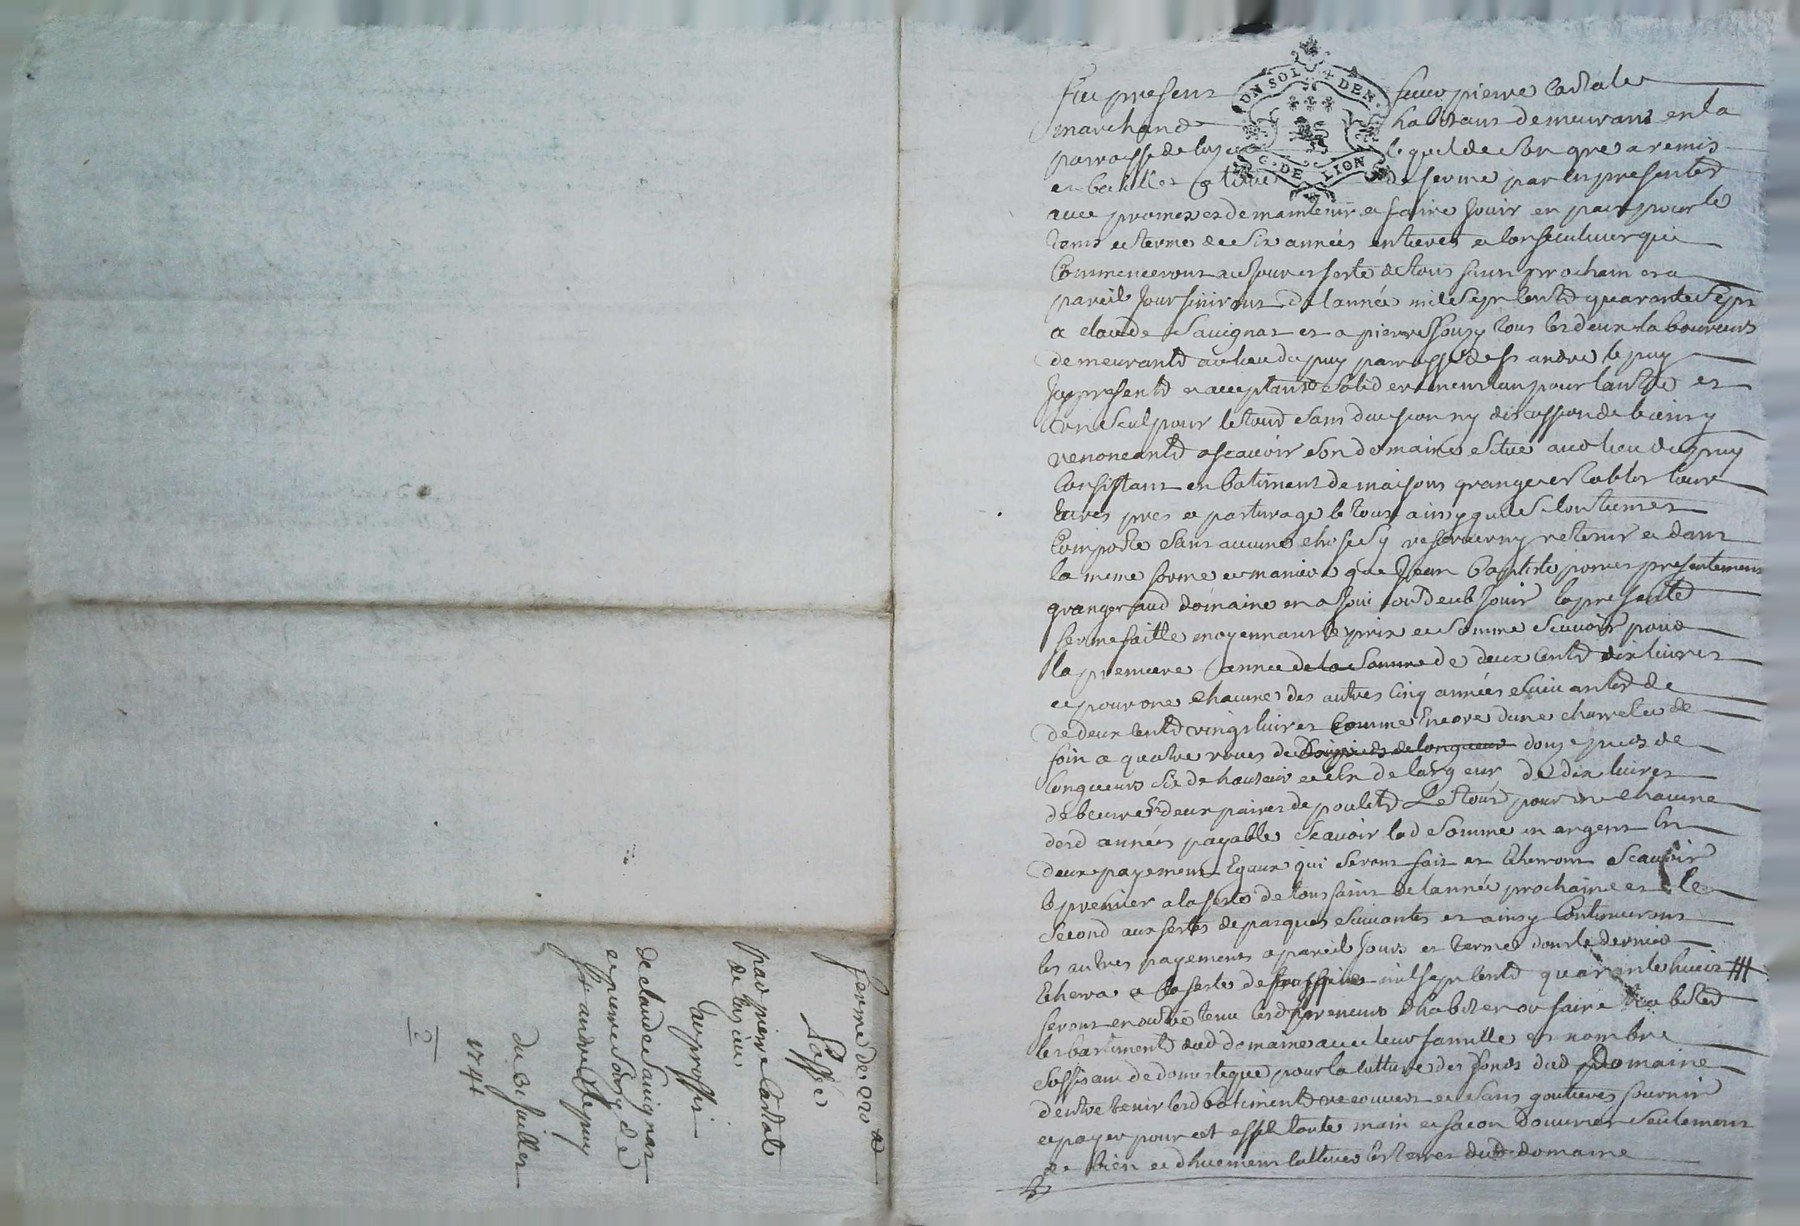 Fut present sieur pierre Cartale
marchand habitant demeurant en la
parroisse de luzieu lequel de son gré a remis
et baillé a titre de ferme par ces presentes
avec promesses de maintenir et faire Jouir en paix pour le
tems et terme de Six années entieres et Consecutives qui
Commenceront au Jour et feste de tous saint prochain et a
pareil Jour finiront de lannée mil Sept Cents quarante Sept
a claude Savignat et a pierre Soury tous les deux laboureurs
demeurants au lieu du puy parroisse de st andré le puy
Jcy presents et acceptants solidairement lun pour lautre et
un seul pour le tout sans division ny discussion de biens y
renonceants a scavoir son domaine situé aud lieu du puy
Consistant en batiment de maisons grange estables Cours
terres prés et pasturage le tout ainsy quil se Contient et
Comporte sans aucune chose s'y reserver ny retenir et dans
la meme forme et maniere que Jean baptiste presentement
granger aud domaine en a Joui ou deub Jouir la presente
ferme faitte moyennant le prix et somme scavoir pour
la premiere année de la Somme de deux Cents dix livres
et pour une chacune des autres Cinq années suivantes de
de deux Cents vingt livres Comme Encore dune charretée de
foin a quatre roues de douze pieds de
longueur Six de hauteur et Six de largeur de dix livres
de beurre et deux paires de poulets Le tout pour une chacune
desd années payable scavoir lad somme en argent En
deux payements Egaux qui seront fait et Echerront Scavoir
le premier a la feste de tous saint de lannée prochaine et le
second aux festes de pasques suivantes et ainsy Continueront
les autres payements a pareil Jours et termes dont le dernier
Echerra a la feste de mil sept Cents quarante huit #
seront en outre tenu lesd preneurs dhabiter ou faire habiter
les bastiments dud domaine avec leur famille et nombre
suffisant de domestique pour la Culture des fonds dud Domaine
dentretenir lesd batiments recouvert et sans goutieres fournir
et payer pour cet effet toute main et facon Douvrier seulement
et bien et dhuement Cultiver les terres dud domaine
ferme de 220 ##
passé
par pierre Cartal
de luzieu
au proffit
de claude Savignat
et pierre Soury de
St andré le puy
du 3e Juillet
1741
2
UN SOL 4 DEN.
G. DE LION